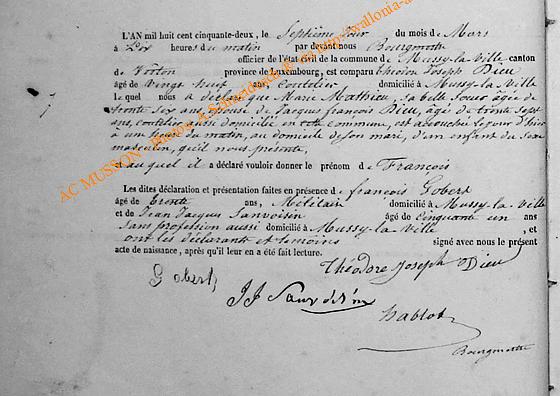 L'AN mil huit cent cinquante-deux, le Septième jour du mois de Mars
à Dix heures du matin par devant nous Bourgmestre
officier de l'état civil de la commune de Mussy-la-Ville canton
de Virton province de Luxembourg, est comparu Théodore Joseph Dieu
âgé de Vingt neuf ans, Coutelier domicilié à Mussy-la-Ville
Lequel nous a déclaré que Marie Mathieu, sa belle soeur âgée de
trente Six ans, épouse de Jacques françois Dieu, âgé de trente Sept
ans, coutelier aussi domiciliée en cette commune, est accouchée le jour d'hier
à une heure du matin, au domicile de son mari, d'un enfant du Sexe
masculin, qu'il nous présente,
et auquel il a déclaré vouloir donner le prénom de François
Les dites déclaration et présentation faites en présence de françois Gobert
âgé de trente ans, Militaire domicilié à Mussy-la-ville
et de Jean Jacques Sauvoisin âgé de cinquante un ans
sans profession aussi domicilié à Mussy-la-Ville , et
ont les déclarants et témoins signé avec nous le présent
acte de naissance, après qu'il leur en a été fait lecture.
Théodore Joseph Dieu
Gobert
JJ Sauvoisin
hablot
Bourgmestre
AC MUSSON